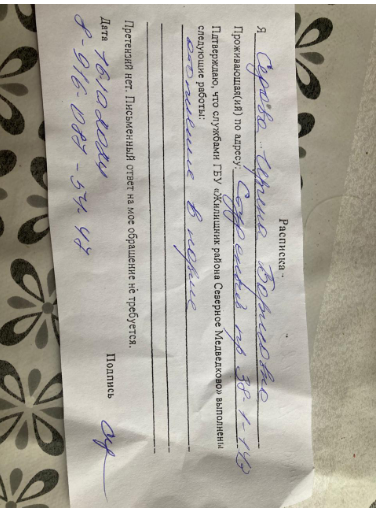 Расписка
Я Серова Ирина Борисовна
Проживающая(ий) по адресу: пр 38-1-142
Пдтверждаю, что службами ГБУ «Жилищник района Северное Медведково» выполнены
следующие работы:
отопление в норме
Претензий нет. Письменный ответ на мое обращение не требуется.
Дата Подпись
8-916-087-54-47